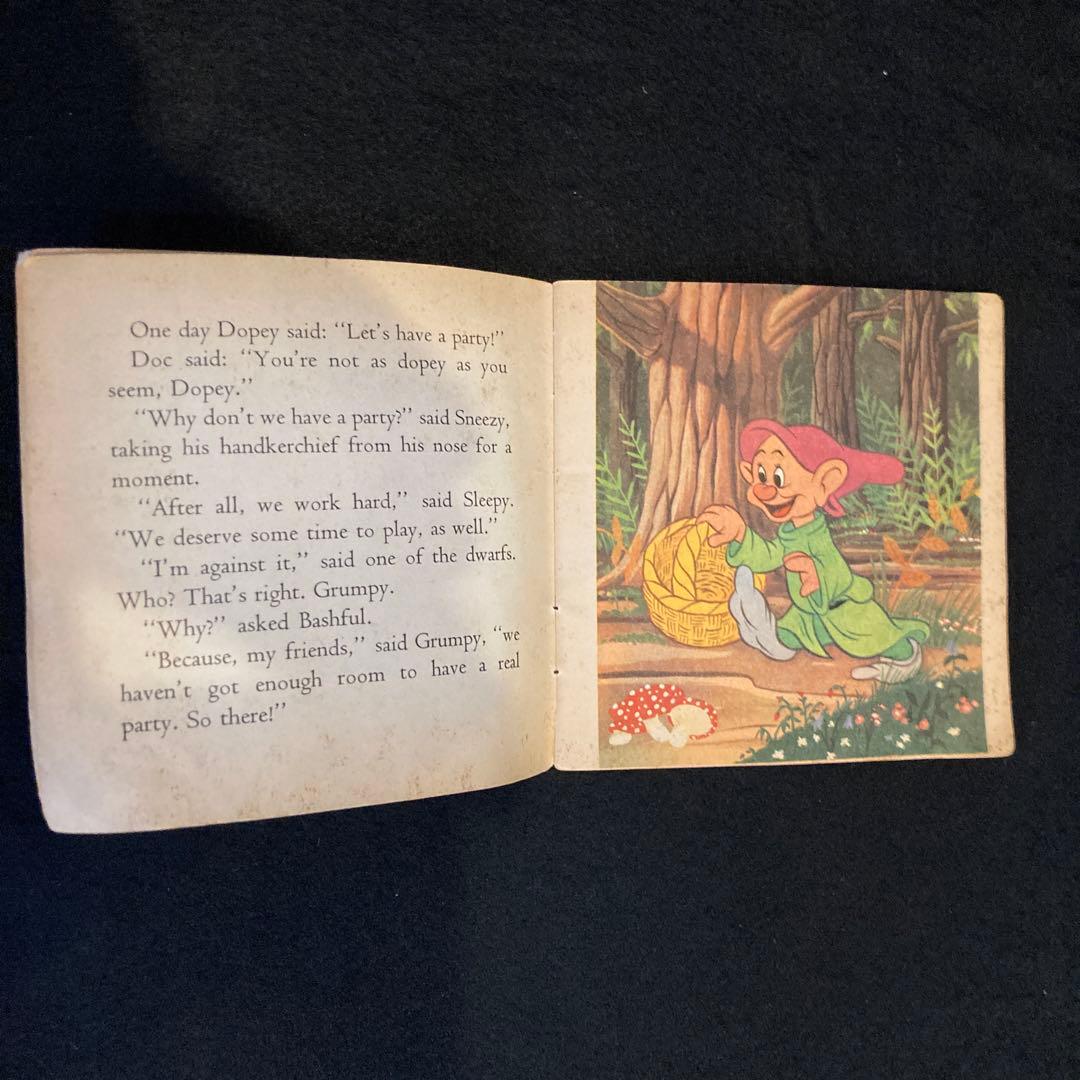 One day Dopey said: “Let's have a party!”
Doc said: “You're not as dopey as you
seem, Dopey.”
“Why don't we have a party?” said Sneezy,
taking his handkerchief from his nose for a
moment.
“After all, we work hard,” said Sleepy.
“We deserve some time to play, as well.”
“I'm against it,” said one of the dwarfs.
Who? That's right. Grumpy.
“Why?” asked Bashful.
“Because, my friends,” said Grumpy, “we
haven't got enough room to have a real
party. So there!”